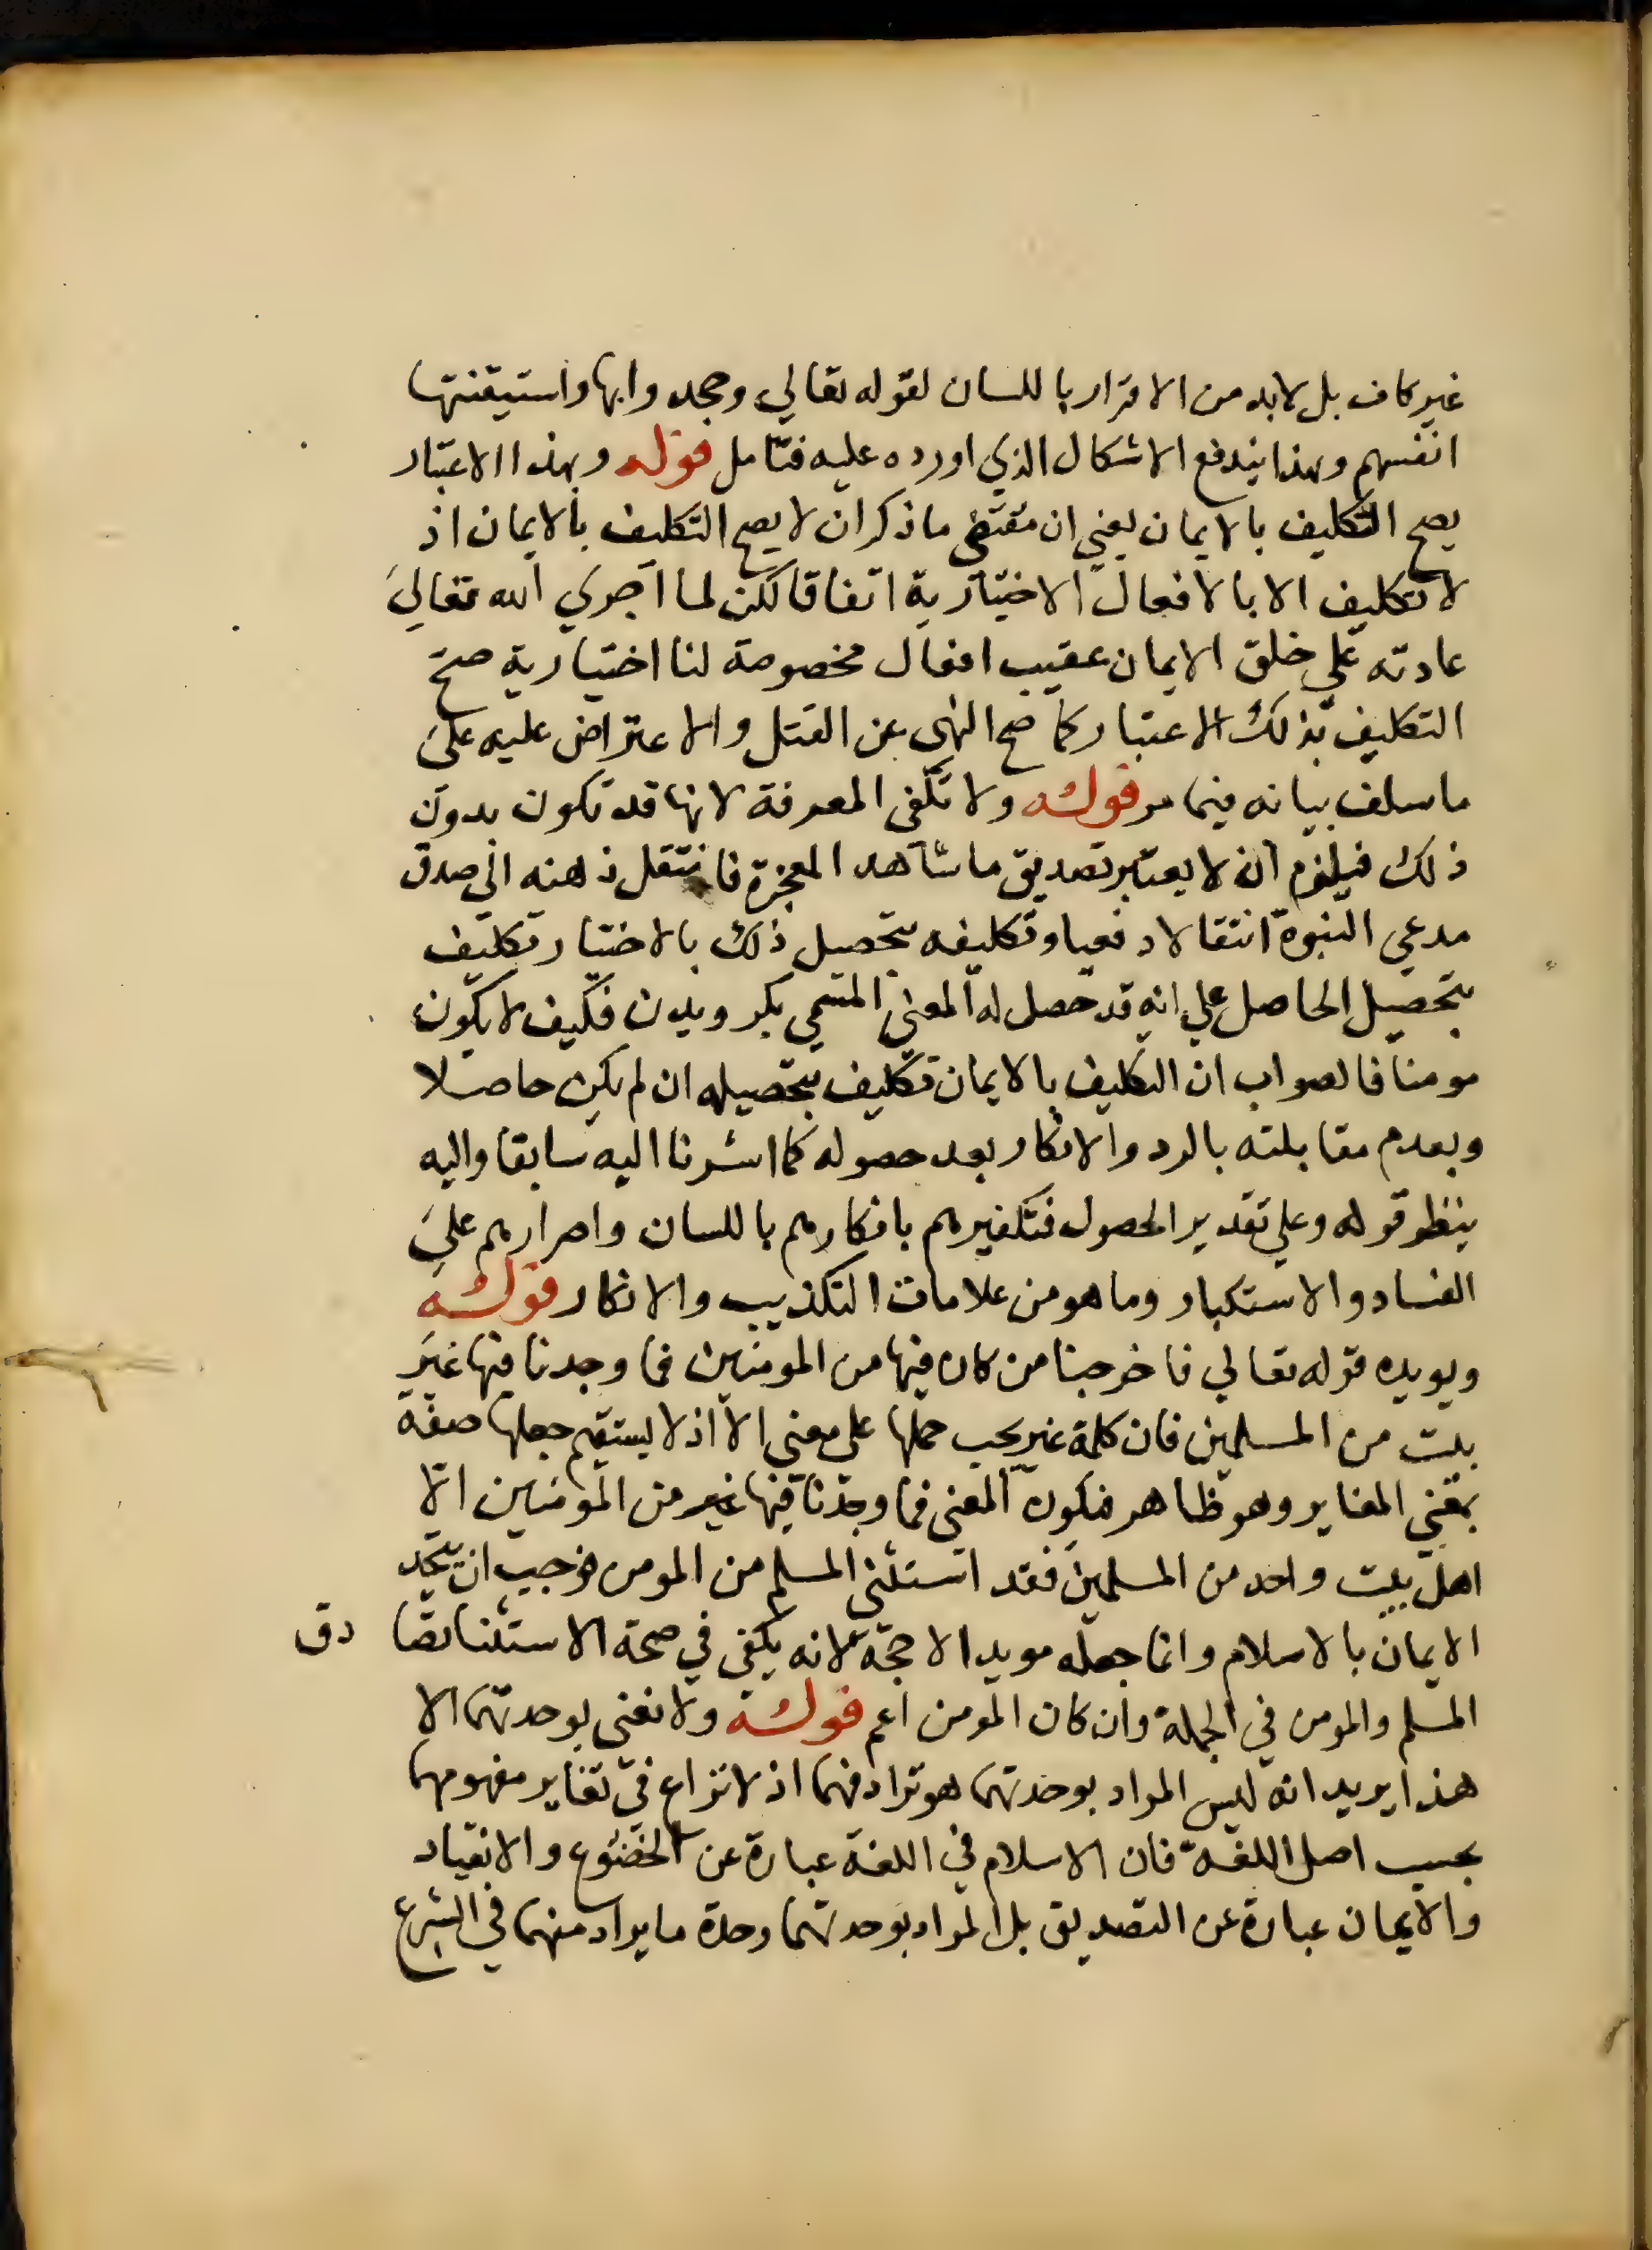 غير كاف بل لابد من الاقرار باللسان لقوله تعالي وجحدوا بها واستيقنتها
انفسهم وبهذا يندفع الاشكال الذي اورده عليه فتامل قوله وبهذا الاعتبار
يصح التكليف بالايمان يعني ان مقتضي ما ذكر ان لا يصح التكليف بالايمان اذ
لا تكليف الا بالافعال الاختيارية اتفاقا لكن لما اجري الله تعالي
عادته علي خلق الايمان عقيب افعال مخصوصة لنا اختيارية صح
التكليف بذلك الاعتبار كما صح النهي عن القتل والاعتراض عليه علي
ما سلف بيانه فيما مر قوله ولا تكفي المعرفة لانها قد تكون بدون
ذلك فيلزم ان لا يعتبر تصديق ما شاهد المعجزة فانتقل ذهنه الي صدق
مدعي النبوة انتقالا دفعيا وتكليفه بتحصيل ذلك بالاختيار تكليف
بتحصيل الحاصل علي انه قد حصل له المعني المسمي بكرويدن فكيف لا يكون
مومنا فالصواب ان التكليف بالايمان تكليف بتحصيله ان لم يكن حاصلا
وبعدم مقابلته بالرد والانكار بعد حصوله كما اشرنا اليه سابقا واليه
ينظر قوله وعلي تقدير الحصول فتكفيرهم بانكارهم باللسان واصرارهم علي
الفساد والاستكبار وما هو من علامات التكذيب والانكار قوله
ويويده قوله تعالي فاخرجنا من كان فيها من المومنين فما وجدنا فيها غير
بيت من المسلمين فان كلمة غير يجب حملها علي معني الا اذ لا يستقيم جعلها صفة
بمعني المغاير وهو ظاهر فيكون المعني فما وجدنا فيها غير من المومنين الا
اهل بيت واحد من المسلمين فقد استثني المسلم من المومن فوجب ان يتحد
الايمان بالاسلام وانما جعله مويدا لا حجة لانه يكفي في صحة الاستثنا تصا دق
المسلم والمومن في الجملة وان كان المومن اعم قوله ولا نعني بوحدتهما الا
هذا يريد انه ليس المراد بوحدتهما هو ترادفهما اذ لا نزاع في تغاير مفهومهما
بحسب اصل اللغة فان الاسلام في اللغة عبارة عن الخضوع والانقياد
والايمان عبارة عن التصديق بل المراد بوحدتهما وحدة ما يراد منهما في الشرع